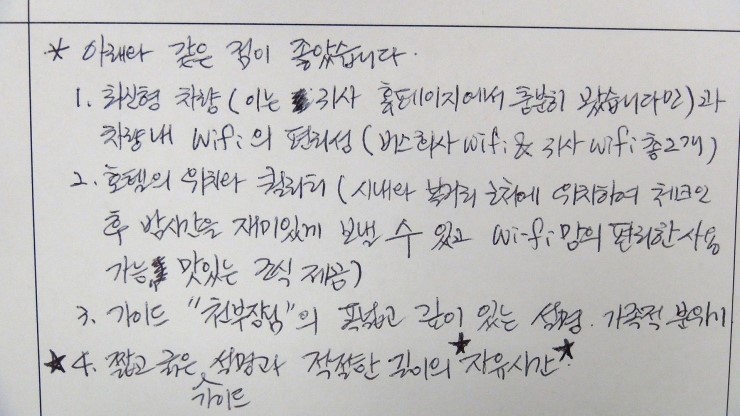 * 아래와 같은 점이 좋았습니다.
1. 최신형 차량 (이는 귀사 홈페이지에서 충분히 봤습니다만)과
차량내 Wifi의 편리성 (버스회사 wifi & 귀사 wifi 총2개)
2. 호텔의 위치와 퀄리티 (시내와 볼거리 근처에 위치하여 체크인
후 밤시간을 재미있게 보낼 수 있고 Wi-fi망의 편리한 사용
가능, 맛있는 조식 제공)
3. 가이드 "천부장님"의 폭넓고 깊이 있는 설명. 가족적 분위기
★4. 짧고 굵은 가이드 설명과 적절한 길이의 ★자유시간★